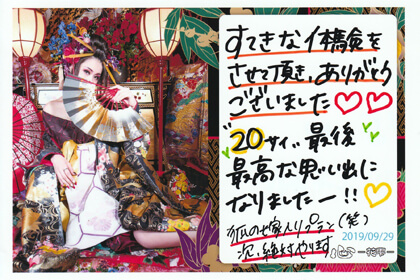 すてきな体験を
させて頂き、ありがとう
ございました♡♡
20サイ、最後
最高な思い出に
なりましたー!!♡
狐の嫁入りプラン(笑)
次、絶対やります
2019/09/29